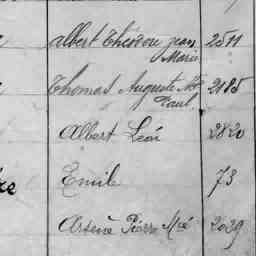 Albert Théodore Jean 2511
Marie
Thomas Auguste Me 2185
Paul
Albert Léon 2820
Emile 73
re
Arsène Pierre Mie 2039